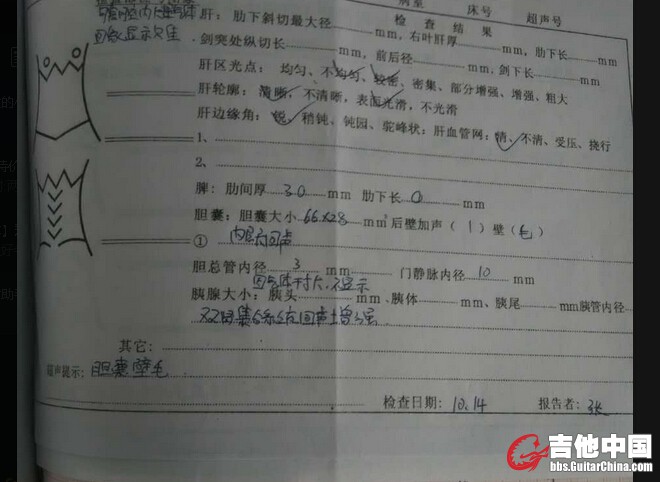 病室 床号 超声号
检查结果
肠腔内大量气体
图象显示欠佳
肝：肋下斜切最大径 mm，右叶肝厚 mm，肋下长
剑突处纵切长 mm，前后径 mm，剑下长 mm
肝区光点：均匀、不均匀、较密、密集、部分增强、增强、粗大
肝轮廓：清晰，不清晰，表面光滑，不光滑
肝边缘角：锐，稍钝、钝园、驼峰状；肝血管网：清、不清、受压、挠行
1、
2、
脾：肋间厚 30 mm 肋下长 0 mm
胆囊：胆囊大小 66×28 mm² 后壁加声（ 1 ）壁（毛）
① 内层 回声
胆总管内径 3 mm 门静脉内径 10 mm
因气体干扰，不显示
胰腺大小：胰头 mm、胰体 mm、胰尾 mm胰管内径
双肾集合系统回声增强
其它：
超声提示：胆囊壁毛
检查日期：10.14 报告者：张
吉他中国
bbs.GuitarChina.com